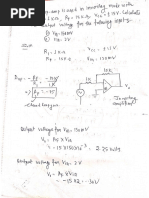 op amp is used in inverting mode with
= 1 KΩ, RF = 15 KΩ, VCC = ±15V. Calculate
output voltage for the following inputs
① Vin = 150mV
② Vin = 2V
Soln
R1 = 1 KΩ VCC = ±15V
RF = 15 KΩ
15K
1K
Closed loop gain
Inverting
amplifier
Output voltage for Vin = 150mV
= -15 X 150 X 10^-3 = -2.25 Volts
Output voltage for Vin = 2V
= -15 X 2 = -30V